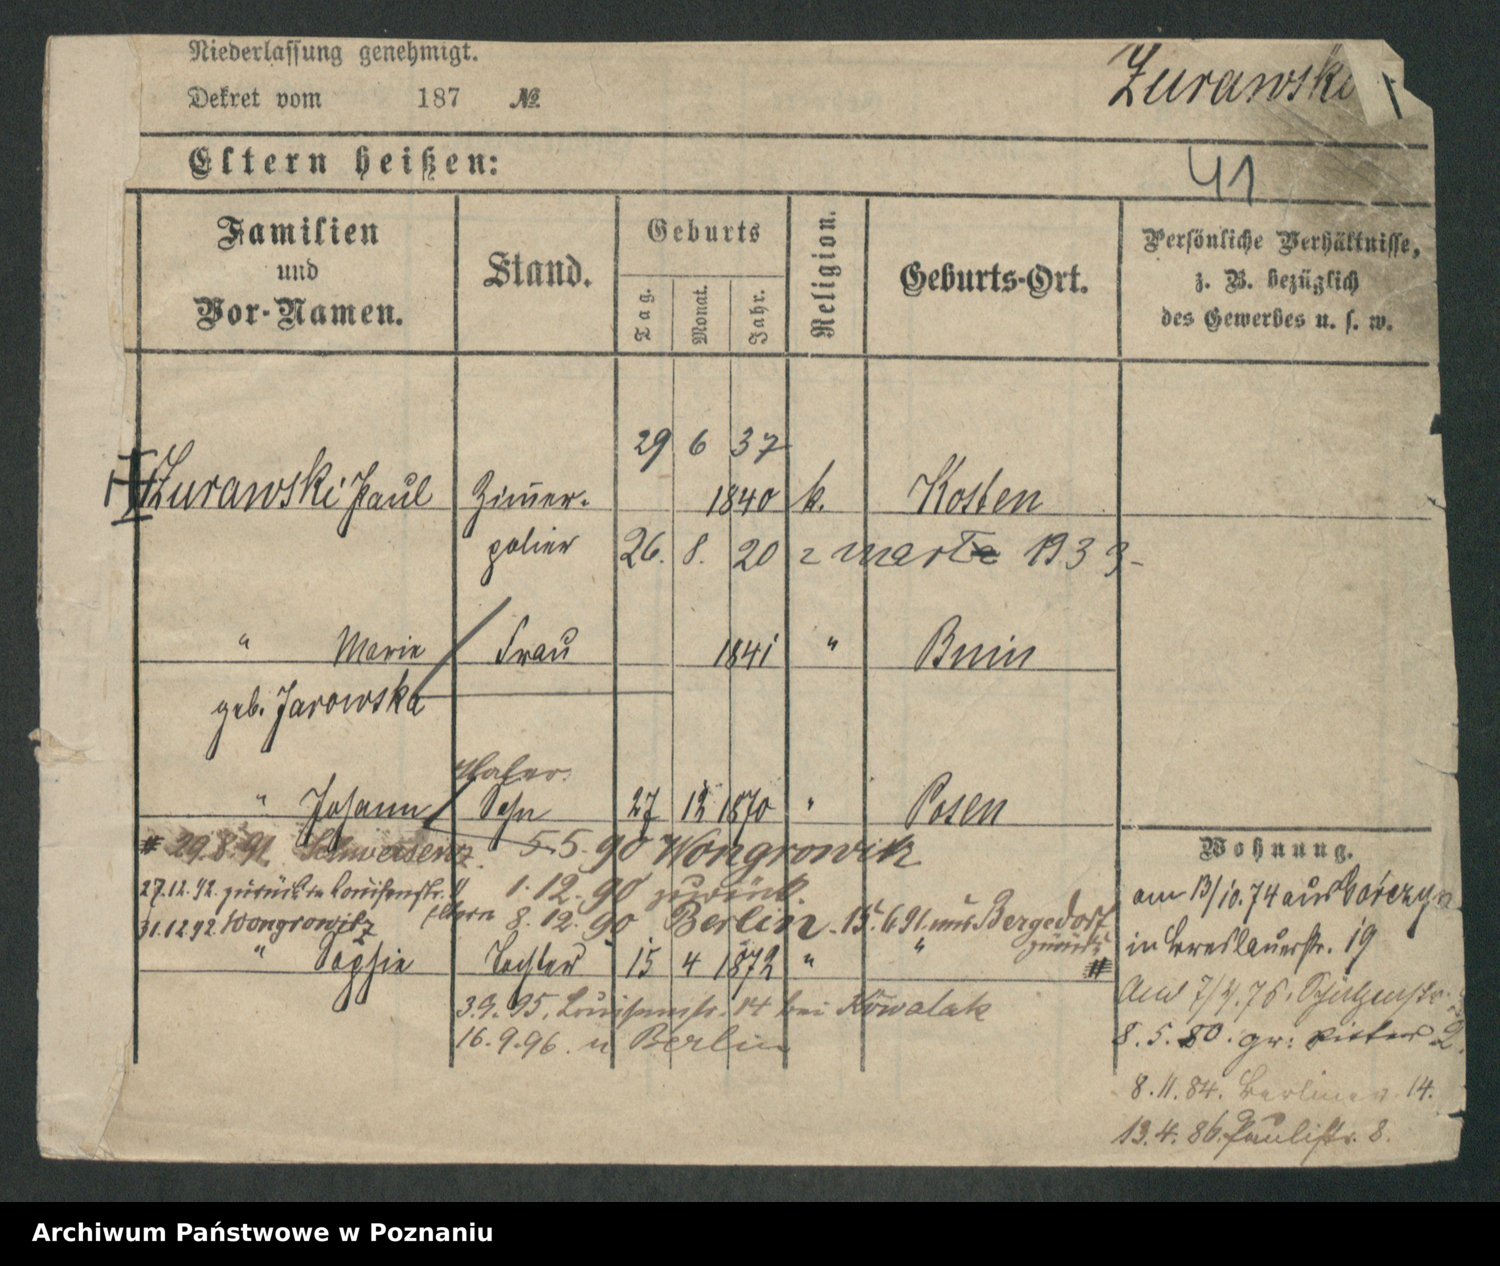 Niederlassung genehmigt.
Dekret vom 187 №
Zurawski
Eltern heißen:
41
Familien und Vor-Namen.
Stand.
Geburts
Tag.
Monat.
Jahr.
Religion.
Geburts-Ort.
Persönliche Verhältnisse, z. B. bezüglich des Gewerbes u. s. w.
29 6 37
Zurawski Paul Zimer- 1840 k. Kosten
polier 26. 8. 20 1933
" Marie Frau 1841 " Bnin
geb. Jarowska
Maler
" Johann Sohn 27 12 1870 " Posen
29.8.91 Schwersenz 5.5.90 Wongrowik
27.12.92 zurück Louisenstr. 1.12.90 zurück
31.12.92 Wongrowitz Eltern 8.12.90 Berlin 15.6.91 aus Bergedorf
zurück
" Sophie Tochter 15 4 1872 " "
3.9.95. Louisenstr. 14 bei Kowalak
16.9.96. n Berlin
Wohnung.
am 13/10.74 aus Gorczyn
in Breslauerstr. 19
8.5.80. gr: Ritter 2.
8.11.84. Berliner 14.
13.4.86. Paulistr. 8.
Archiwum Państwowe w Poznaniu